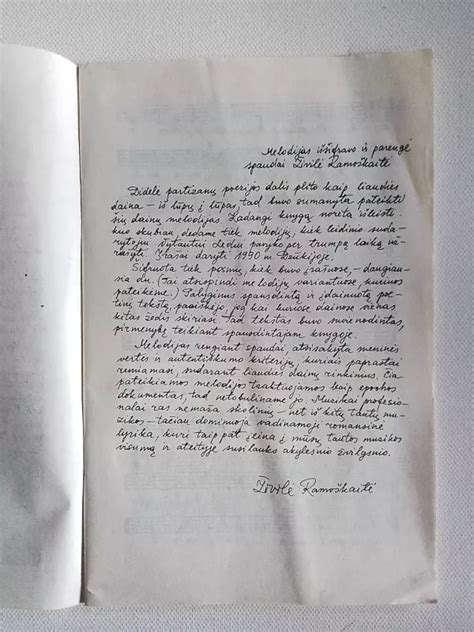 Melodijas iššifravo ir parengė
spaudai Živilė Ramoškaitė
Didelė partizanų poezijos dalis plito kaip liaudies
daina – iš lūpų į lūpas tad buvo sumanyta pateikti
šių dainų melodijas. Kadangi knygą norėta išleisti
kuo skubiau, dedame tiek melodijų, kiek leidinio suda-
rytojui Vytautui Ledui pavyko per trumpą laiką už-
rašyti. Įrašai daryti 1990 m. Dzūkijoje.
Šifruota tiek posmų, kiek buvo įrašuose, – daugiau-
sia du. (Tai atsispindi melodijų variantuose, kuriuos
pateikėme.) Palyginus spausdintą ir įdainuotą poe-
tinį tekstą, paaiškėjo, jog kai kuriose dainose vienas
kitas žodis skiriasi, tad tekstas buvo suvienodintas,
pirmenybę teikiant spausdintajam knygoje.
Melodijas rengiant spaudai, atsisakyta meninės
vertės ir autentiškumo kriterijų, kuriais paprastai
remiamasi, sudarant liaudies dainų rinkinius. Čia
pateikiamos melodijos traktuojamos kaip epochos
dokumentas, tad netobuliname jo. Muzikai profesio-
nalai ras nemaža skolinių – net iš kitų tautų mu-
zikos – tačiau dominuoja vadinamoji romansinė
lyrika, kuri taip pat įeina į mūsų tautos muzikos
visumą ir ateityje susilauks akylesnio žvilgsnio.
Živilė Ramoškaitė